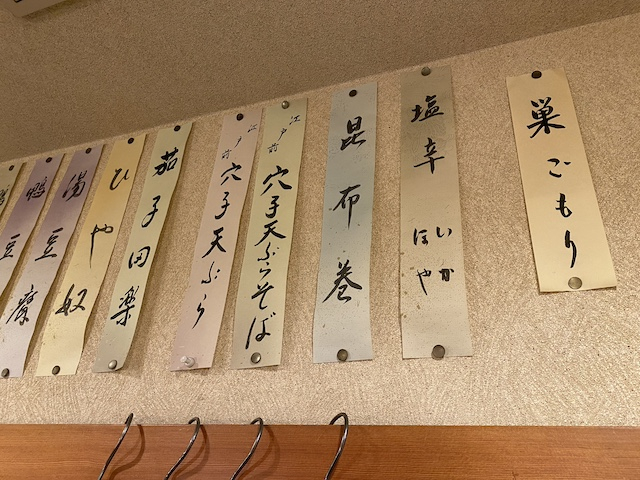 巣ごもり
塩辛
いか
ほや
昆布巻
江戸前
穴子天ぷらそば
江戸前
穴子天ぷら
茄子田楽
ひや奴
湯豆腐
鴨豆腐